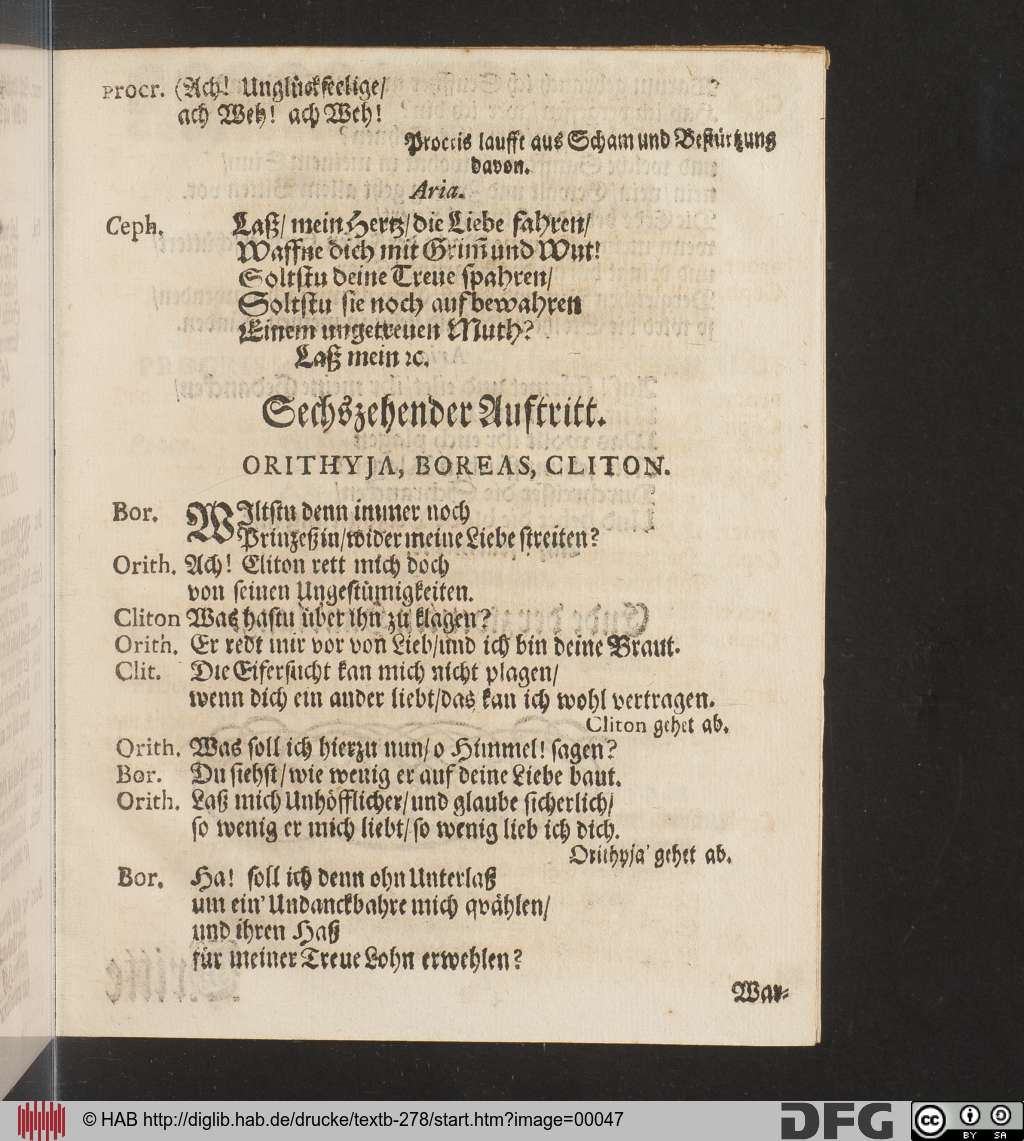 procr. (Ach! Unglückseelige/
ach Weh! ach Weh!
Procris laufft aus Scham und Bestürtzung
davon.
Aria.
Ceph. Laß/ mein Hertz/ die Liebe fahren/
Waffne dich mit Grim̃ und Wut!
Soltstu deine Treue spahren/
Soltstu sie noch auf bewahren
Einem ungetreuen Muth?
Laß mein ꝛc.
Sechszehender Auftritt.
ORITHYJA, BOREAS, CLITON.
Bor. WIltstu denn immer noch
Prinzeßin/wider meine Liebe streiten?
Orith. Ach! Cliton rett mich doch
von seinen Ungestümigkeiten.
Cliton Was hastu über ihn zu klagen?
Orith. Er redt mir vor von Lieb/und ich bin deine Braut.
Clit. Die Eifersucht kan mich nicht plagen/
wenn dich ein ander liebt/das kan ich wohl vertragen.
Cliton gehet ab.
Orith. Was soll ich hierzu nun/ o Himmel! sagen?
Bor. Du siehst/ wie wenig er auf deine Liebe baut.
Orith. Laß mich Unhöfflicher/ und glaube sicherlich/
so wenig er mich liebt/ so wenig lieb ich dich.
Orithyja gehet ab.
Bor. Ha! soll ich denn ohn Unterlaß
um ein' Undanckbahre mich qvählen/
und ihren Haß
für meiner Treue Lohn erwehlen?
War-
© HAB http://diglib.hab.de/drucke/textb-278/start.htm?image=00047
DFG
cc
BY SA